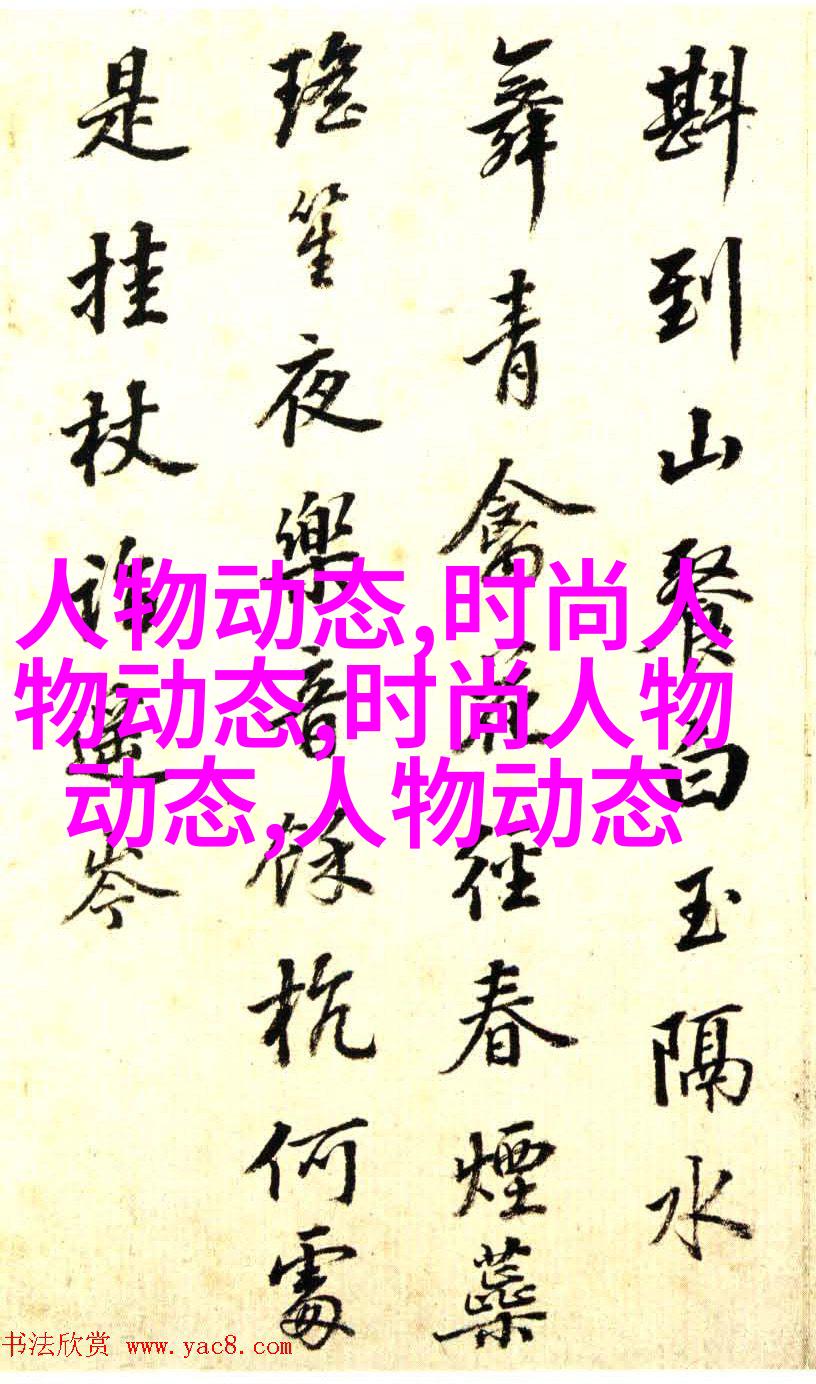 斟到山餐玉隔水
舞青禽径春煙蘂
瑤笙夜樂音餘杭何處
是挂杖誰遥岑
人物动态,时尚人
物动态,时尚人物
动态,人物动态
书法欣赏 www.yac8.com